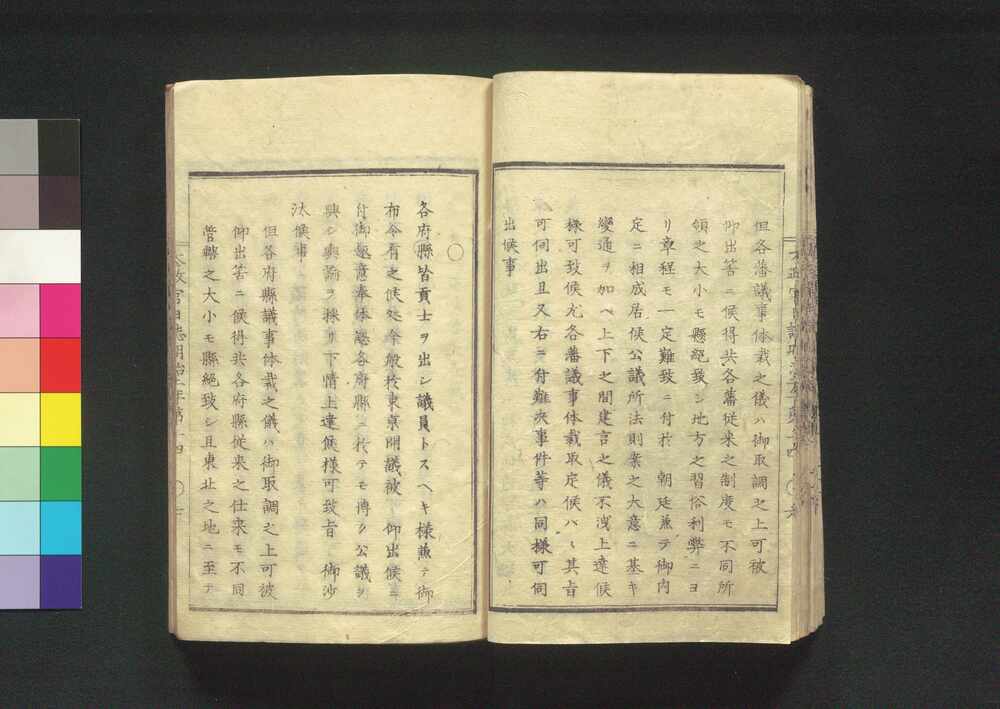 但各藩議事体裁之儀ハ御取調之上可被
仰出筈ニ候得共各藩従来之制度モ不同所
領之大小モ懸絶致シ地方之習俗利弊ニヨ
リ章程モ一定難致ニ付於 朝廷兼テ御内
定ニ相成居候公議所法則案之大意ニ基キ
変通ヲ加ヘ上下之間建言之儀不洩上達候
様可致候尤各藩議事体裁取定候ハヽ其旨
可伺出且又右ニ付難決事件等ハ同様可伺
出候事
○
各府縣皆貢士ヲ出シ議員トスヘキ様兼テ御
布令有之候処今般於東京開議被 仰出候ニ
付御趣意奉体認各府縣ニ於テモ博ク公議ヲ
興シ輿論ヲ採リ下情上達候様可致旨 御沙
汰候事
但各府縣議事体裁之儀ハ御取調之上可被
仰出筈ニ候得共各府縣従来之仕来モ不同
管轄之大小モ懸絶致シ且東北之地ニ至テ
太政官日誌明治二年第十四